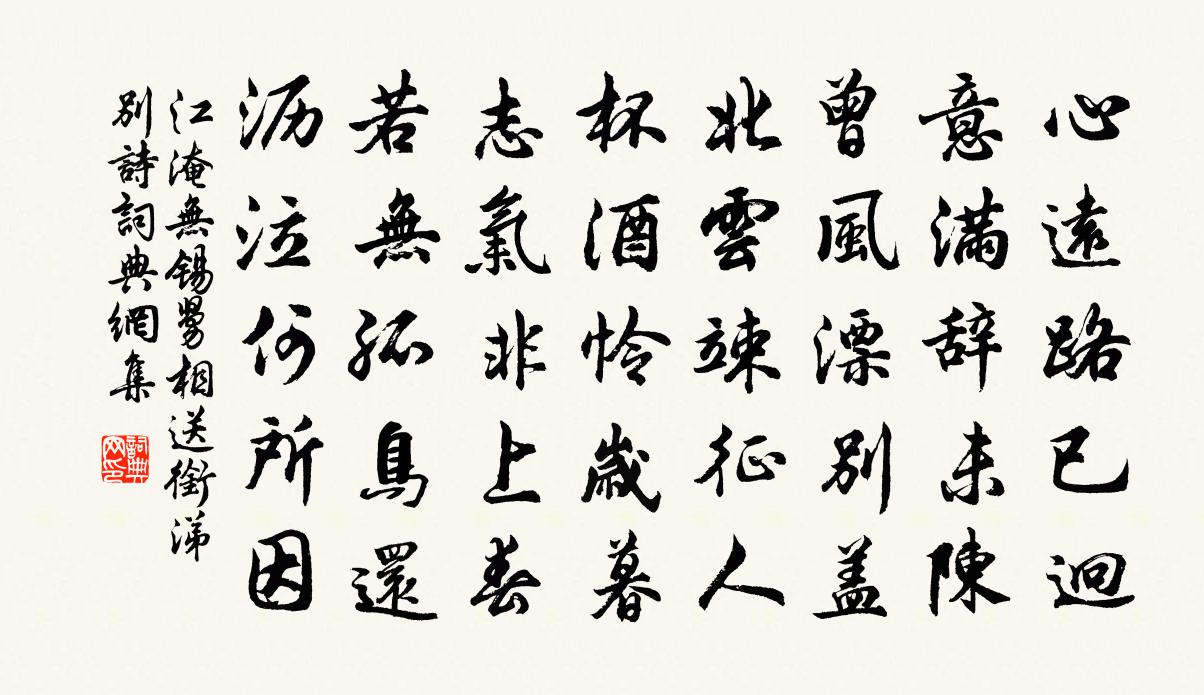 心遠路已迥
意滿辞未陳
曾風漂別盖
北雲竦征人
杯酒怜歲暮
志氣非上春
若無孤鳥還
沥泣何所因
江淹無锡舅相送銜涕
別詩詞典網集
詞典网印